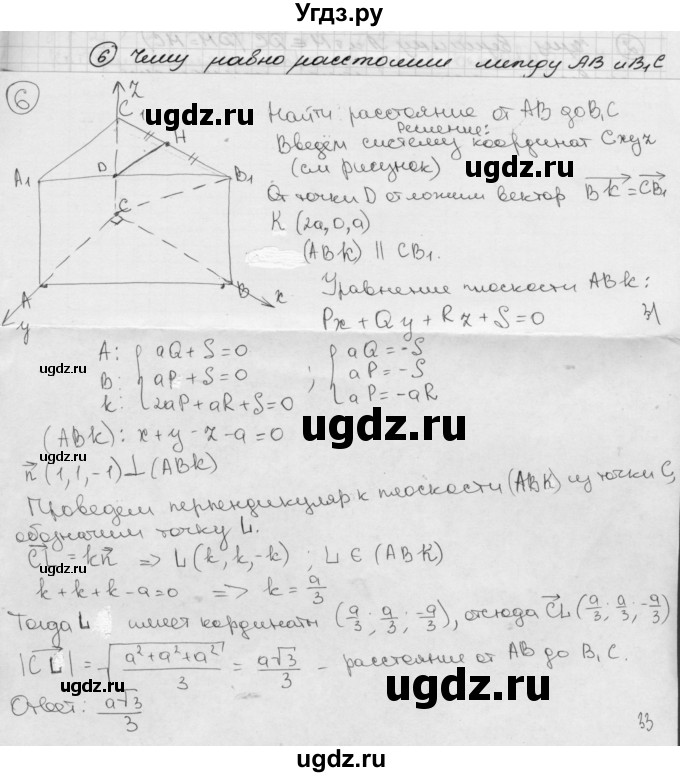 Угдз.ру
⑥ Чему равно расстояние между AB и B₁C
⑥
z
C₁
H
A₁
D
B₁
C
A
B
x
y
Найти расстояние от AB до B₁C
Решение:
Введём систему координат Cxyz
(см рисунок)
От точки D отложим вектор BK = CB₁
K (2a, 0, a)
(ABK) || CB₁.
Уравнение плоскости ABK:
Px + Qy + Rz + S = 0
A: { aQ + S = 0 ; { aQ = -S
B: { aP + S = 0 { aP = -S
K: { 2aP + aR + S = 0 { aP = -aR
(ABK): x + y - z - a = 0
n (1, 1, -1) ⊥ (ABK)
Проведем перпендикуляр к плоскости (ABK) из точки C,
обозначим точку L.
CL = kn => L (k, k, -k) ; L ∈ (ABK)
k + k + k - a = 0 => k = a/3
Тогда L имеет кординаты (a/3; a/3; -a/3), отсюда CL (a/3; a/3; -a/3)
|CL| = √(a² + a² + a²)/3 = a√3/3 - расстояние от AB до B₁C.
Ответ: a√3/3
33
ugdz.ru
ugdz.ru
ugdz.ru
ugdz.ru
ugdz.ru
ugdz.ru
ugdz.ru
ugdz.ru
ugdz.ru
ugdz.ru